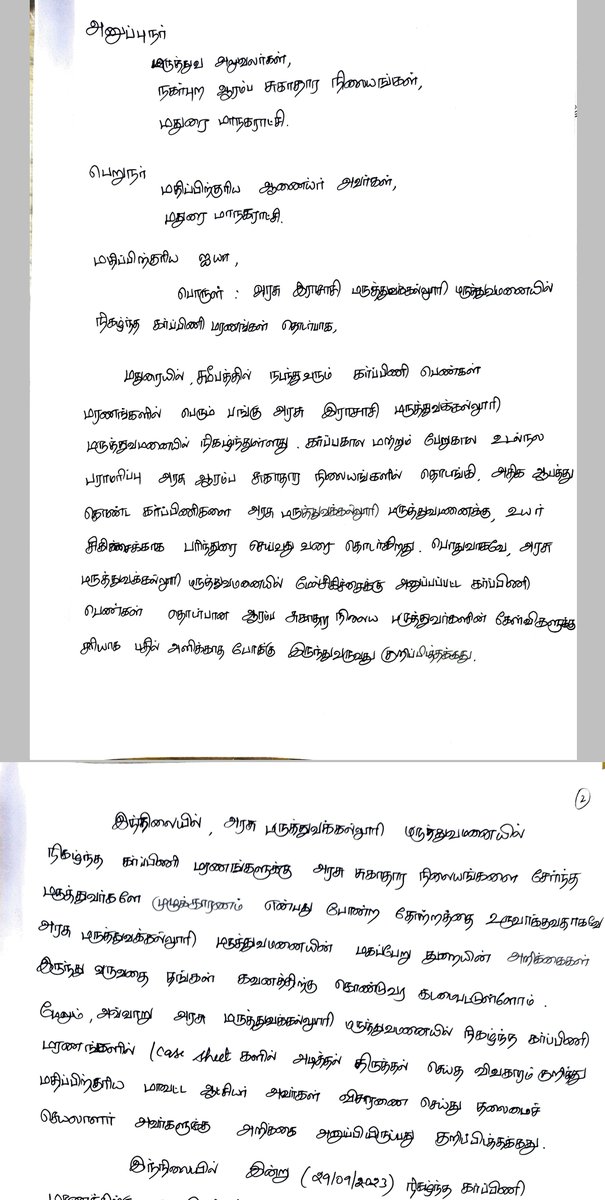 அனுப்புநர்
மருத்துவ அலுவலர்கள்,
நகர்புற ஆரம்ப சுகாதார நிலையங்கள்,
மதுரை மாநகராட்சி.
பெறுநர்
மதிப்பிற்குரிய ஆணையர் அவர்கள்,
மதுரை மாநகராட்சி.
மதிப்பிற்குரிய ஐயா,
பொருள் : அரசு இராசாசி மருத்துவக்கல்லூரி மருத்துவமனையில்
நிகழ்ந்த கர்ப்பிணி மரணங்கள் தொடர்பாக,
மதுரையில், சமீபத்தில் நடந்துவரும் கர்ப்பிணி பெண்கள்
மரணங்களில் பெரும் பங்கு அரசு இராசாசி மருத்துவக்கல்லூரி
மருத்துவமனையில் நிகழ்ந்துள்ளது. கர்ப்பகால மற்றும் பேறுகால உடல்நல
பராமரிப்பு அரசு ஆரம்ப சுகாதார நிலையங்களில் தொடங்கி, அதிக ஆபத்து
கொண்ட கர்ப்பிணிகளை அரசு மருத்துவக்கல்லூரி மருத்துவமனைக்கு, உயர்
சிகிச்சைக்காக பரிந்துரை செய்வது வரை தொடர்கிறது. பொதுவாகவே, அரசு
மருத்துவக்கல்லூரி மருத்துவமனையில் மேல்சிகிச்சைக்கு அனுப்பப்பட்ட கர்ப்பிணி
பெண்கள் தொடர்பான ஆரம்ப சுகாதார நிலைய மருத்துவர்களின் கேள்விகளுக்கு
சரியாக பதில் அளிக்காத போக்கு இருந்துவருவது குறிப்பிடத்தக்கது.
2
இந்நிலையில், அரசு மருத்துவக்கல்லூரி மருத்துவமனையில்
நிகழ்ந்த கர்ப்பிணி மரணங்களுக்கு அரசு சுகாதார நிலையங்களை சேர்ந்த
மருத்துவர்களே முழுக்காரணம் என்பது போன்ற தோற்றத்தை உருவாக்குவதாகவே
அரசு மருத்துவக்கல்லூரி மருத்துவமனையின் மகப்பேறு துறையின் அறிக்கைகள்
இருந்து வருவதை தங்கள் கவனத்திற்கு கொண்டுவர கடமைபட்டுள்ளோம்.
மேலும், அவ்வாறு அரசு மருத்துவக்கல்லூரி மருத்துவமனையில் நிகழ்ந்த கர்ப்பிணி
மரணங்களில் (case sheet களில் அடித்தல் திருத்தல் செய்த விவகாரம் குறித்து
மதிப்பிற்குரிய மாவட்ட ஆட்சியர் அவர்கள் விசாரணை செய்து தலைமைச்
செயலாளர் அவர்களுக்கு அறிக்கை அனுப்பியிருப்பது குறிப்பிடத்தக்கது.
இந்நிலையில் இன்று (29/09/2023) நிகழ்ந்த கர்ப்பிணி